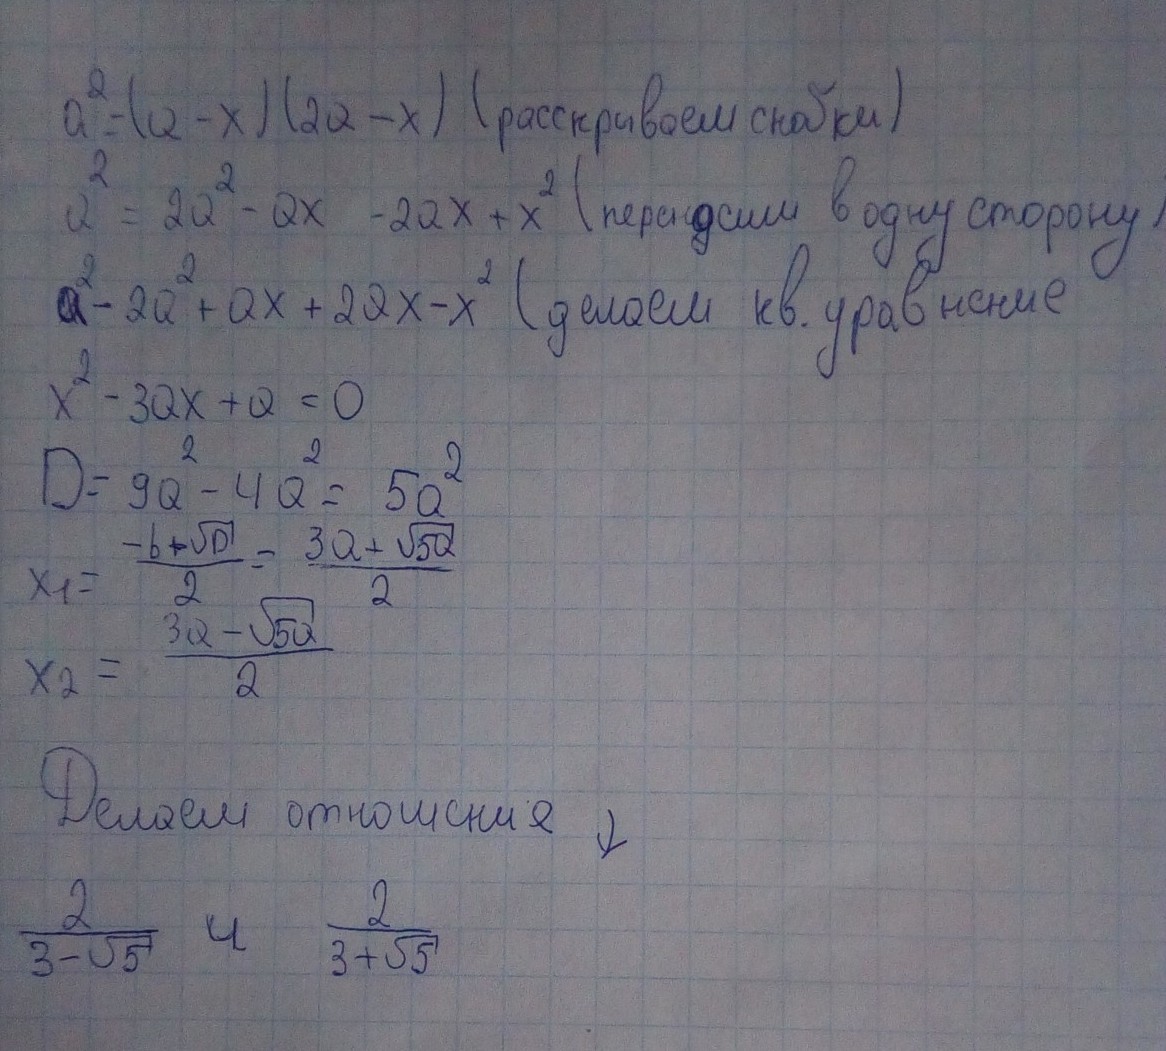 a² = (a - x)(2a - x) (расскриваем скобки)
a² = 2a² - ax - 2ax + x² (переносим в одну сторону)
a² - 2a² + ax + 2ax - x² (делаем кв. уравнение
x² - 3ax + a = 0
D = 9a² - 4a² = 5a²
x₁ = (-b+√D)/2 = (3a+√5a)/2
x₂ = (3a-√5a)/2
Делаем отношения ↓
2/(3-√5) и 2/(3+√5)